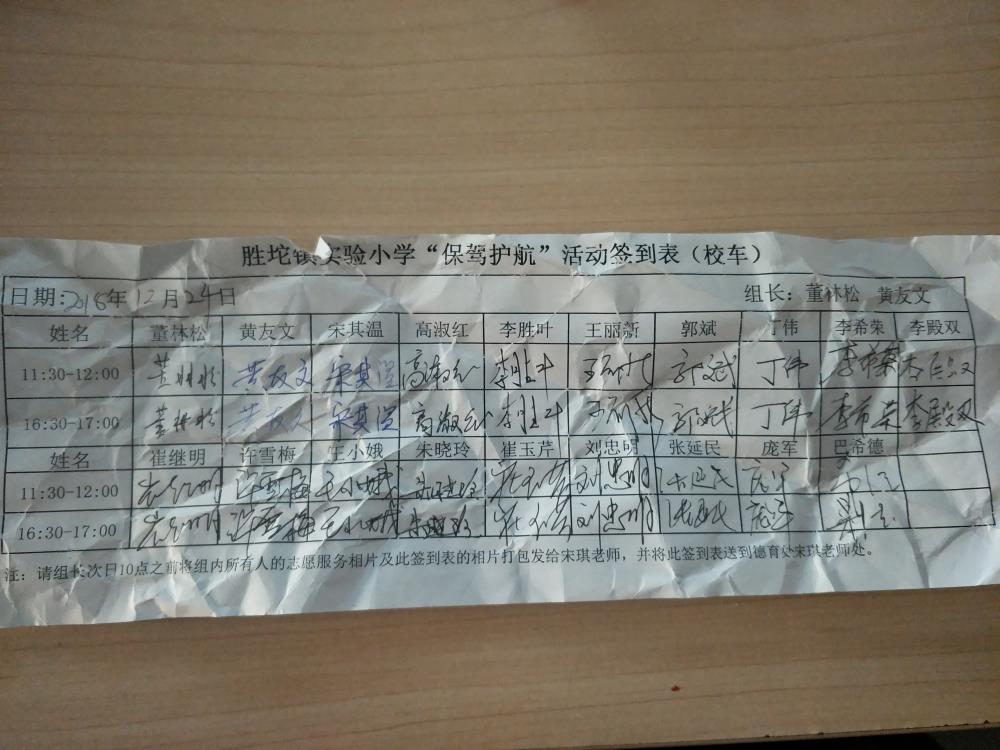 胜坨镇实验小学“保驾护航”活动签到表（校车）
日期:2018年12月24日 组长：董林松 黄友文
姓名 董林松 黄友文 宋其温 高淑红 李胜叶 王丽新 郭斌 丁伟 李希荣 李殿双
11:30-12:00 董林松 黄友文 宋其温 高淑红 李胜叶 郭斌 丁伟 李希荣 李殿双
16:30-17:00 董林松 黄友文 宋其温 高淑红 李胜叶 郭斌 丁伟 李希荣 李殿双
姓名 崔继明 许雪梅 王小娥 朱晓玲 崔玉芹 刘忠明 张延民 庞军 巴希德
11:30-12:00 崔继明 许雪梅 王小娥 朱晓玲 崔玉芹 刘忠明 张延民 庞军
16:30-17:00 崔继明 许雪梅 王小娥 朱晓玲 崔玉芹 刘忠明 张延民 庞军
注：请组长次日10点之前将组内所有人的志愿服务相片及此签到表的相片打包发给宋琪老师，并将此签到表送到德育处宋琪老师处。